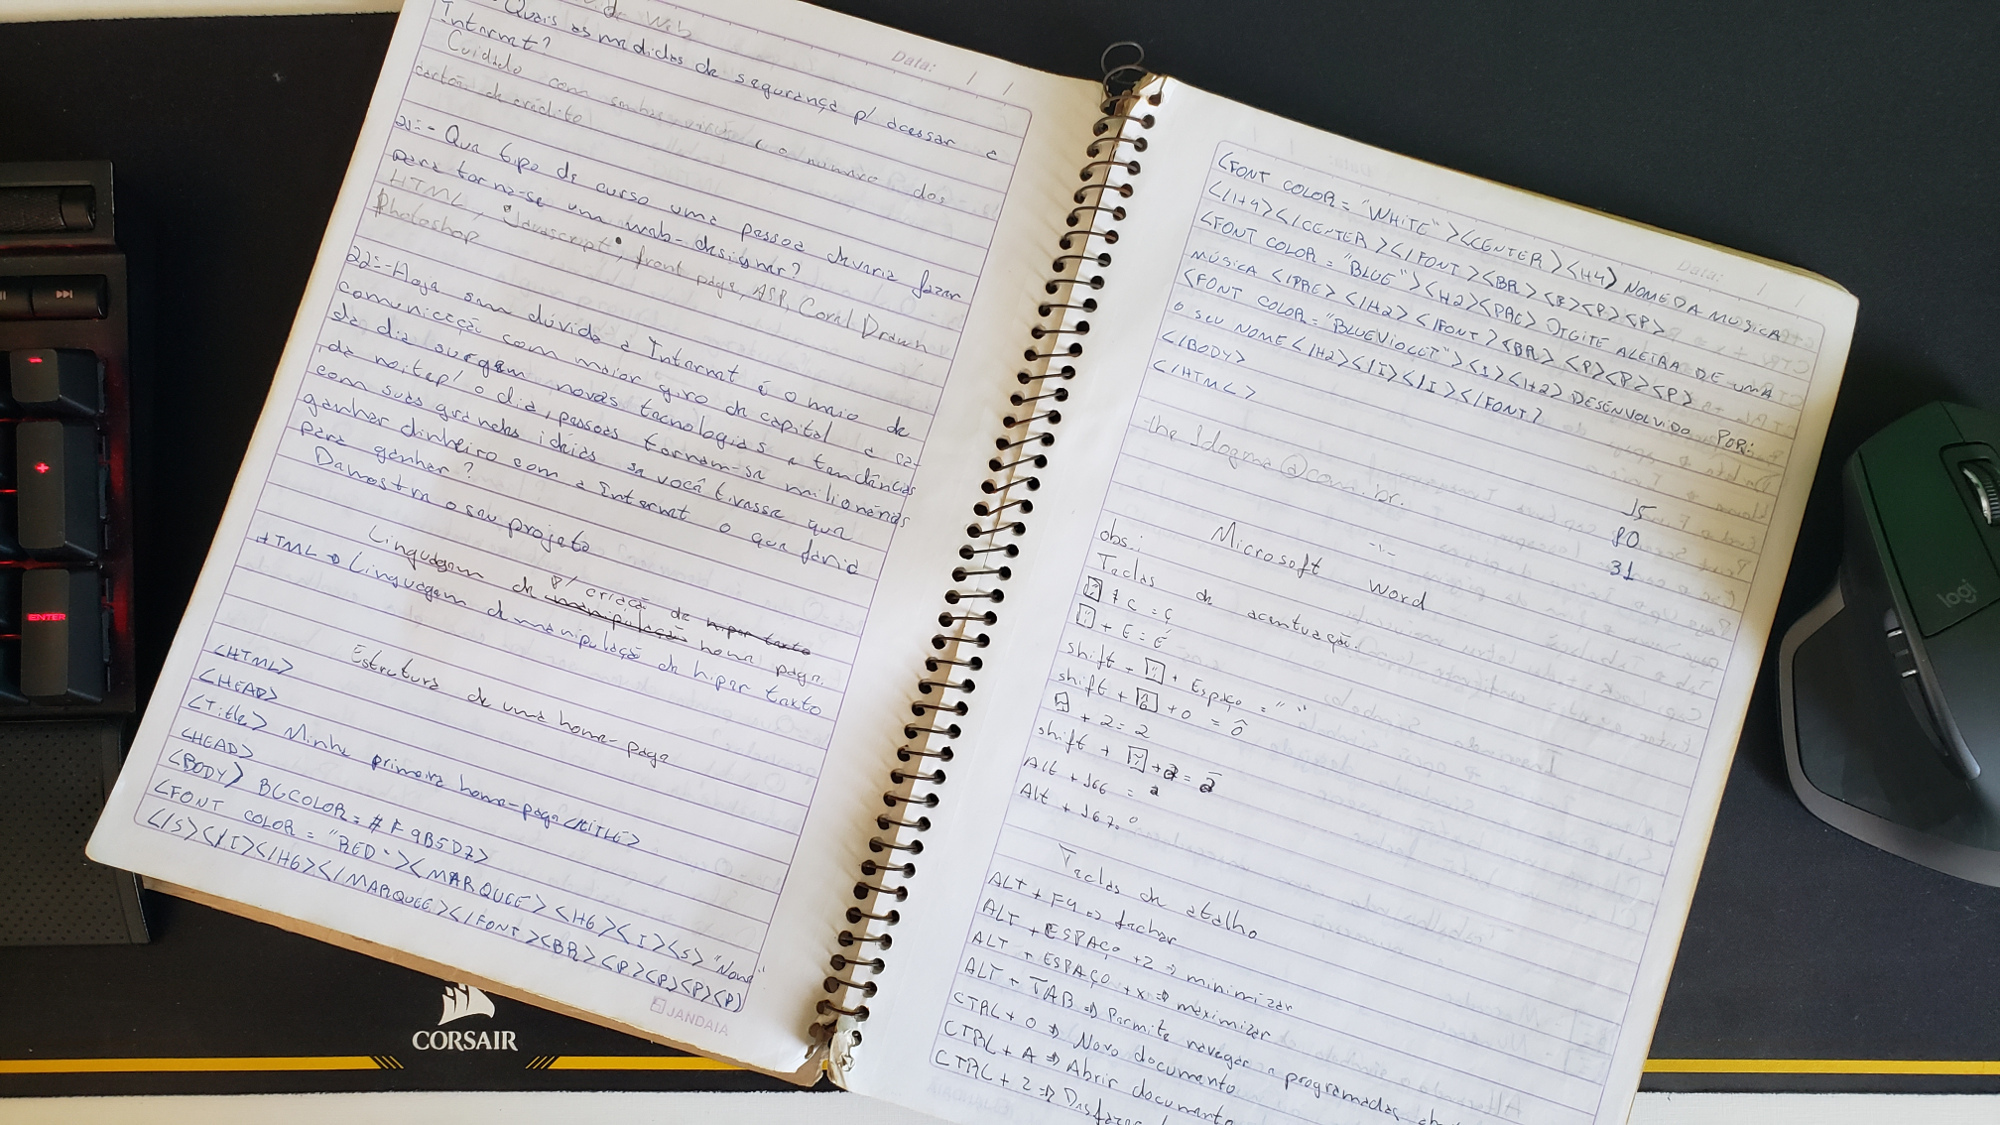 Web
Data: / /
Quais as medidas de segurança p/ acessar a
Internet?
Cuidado com senhas e o número dos
cartões de crédito
21:- Que tipo de curso uma pessoa deveria fazer
para torna-se um web-designer?
HTML, "Javascript", front page, ASP, Corel Drawn
Photoshop
22:- Hoje sem dúvida a Internet é o meio de
comunicação com maior giro de capital a ca-
da dia surgem novas tecnologias e tendências
da noite p/ o dia, pessoas tornam-se milionárias
com suas grandes idéias se você tivesse que
ganhar dinheiro com a Internet o que faria
para ganhar?
Demostre o seu projeto
p/ criação
Linguagem de manipulação de hiper texto home page.
HTML => Linguagem de manipulação de hiper texto
Estrutura de uma home-page
<HTML>
<HEAD>
<Title> Minha primeira home-page </TITLE>
<HEAD>
<BODY> BGCOLOR = # F9B5D7>
<FONT COLOR = "RED"><MARQUEE><H6><I><S> "Nome"
</S></I></H6></MARQUEE></FONT><BR><P><P><P>
JANDAIA
Data:
<FONT COLOR = "WHITE"><CENTER><H4> NOME DA MÚSICA
</H4></CENTER></FONT><BR><B><P><P>
<FONT COLOR = "BLUE"><H2><PRE> DIGITE A LETRA DE UMA
MÚSICA </PRE></H2></FONT><BR><P><P><P>
<FONT COLOR = "BLUEVIOLET"><I><H2> DESENVOLVIDO POR:
O SEU NOME </H2></I></I></FONT>
</BODY>
</HTML>
@com.br.
15
80
31
Microsoft Word
obs.:
Teclas de acentuação.
+ C = ç
+ E = É
shift + + Espaço = " "
shift + + O = ô
+ 2 = 2
shift + + a = ã
Alt + 166 = ª
Alt + 167. º
Teclas de atalho
ALT + F4 => fechar
ALT + ESPAÇO + 2 => minimizar
ALT + ESPAÇO + X => maximizar
ALT + TAB => Permite navegar a programadas
CTRL + O => Novo documento
CTRL + A => Abrir documento
CTRL + Z => Desfazer
ENTER
CORSAIR
logi